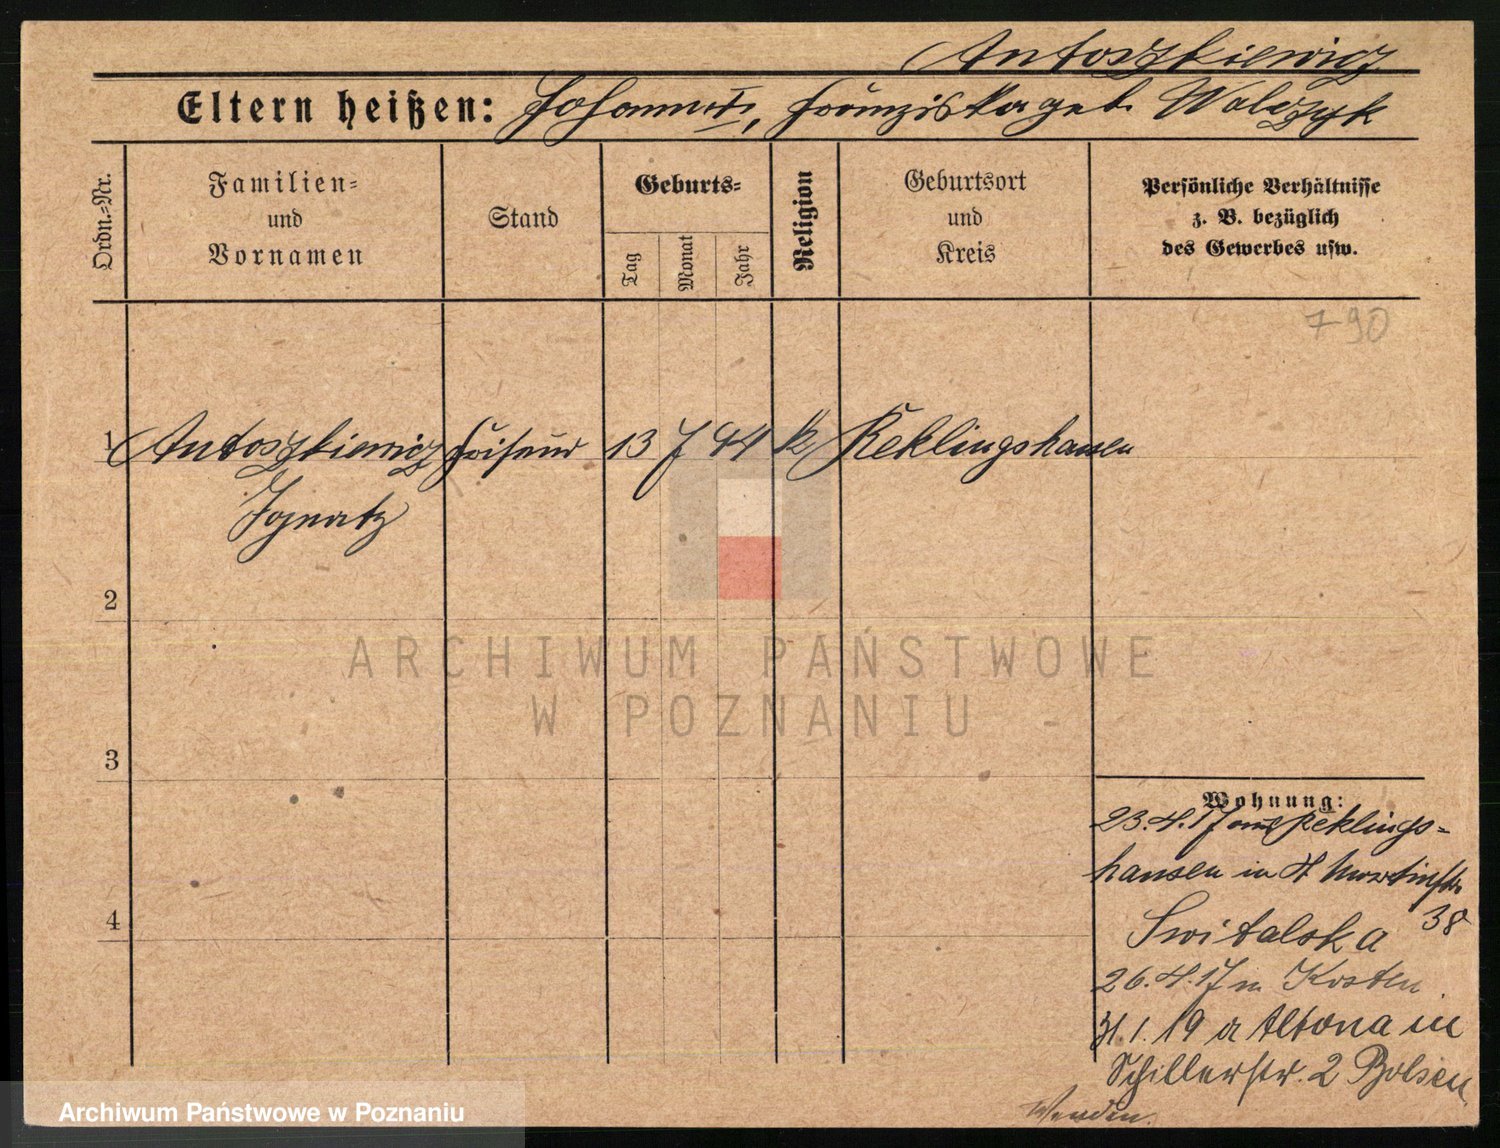 Antoszkiewicz
Eltern heißen: Johann, Franziska geb. Walczyk
Ordn.-Nr.
Familien-
und
Vornamen
Stand
Geburts-
Tag
Monat
Jahr
Religion
Geburtsort
und
Kreis
Persönliche Verhältnisse
z. B. bezüglich
des Gewerbes usw.
790
1 Antoszkiewicz Friseur 13 7 94 k Reklingshausen
Ignatz
2
ARCHIWUM PAŃSTWOWE
W POZNANIU -
3
Wohnung:
23.4.17 aus Reklings-
hausen in St Martinstr
38
Switalska
26.4.17 n Kosten
31.1.19 a Altona in
Schillerstr. 2
Wenden.
Archiwum Państwowe w Poznaniu
4